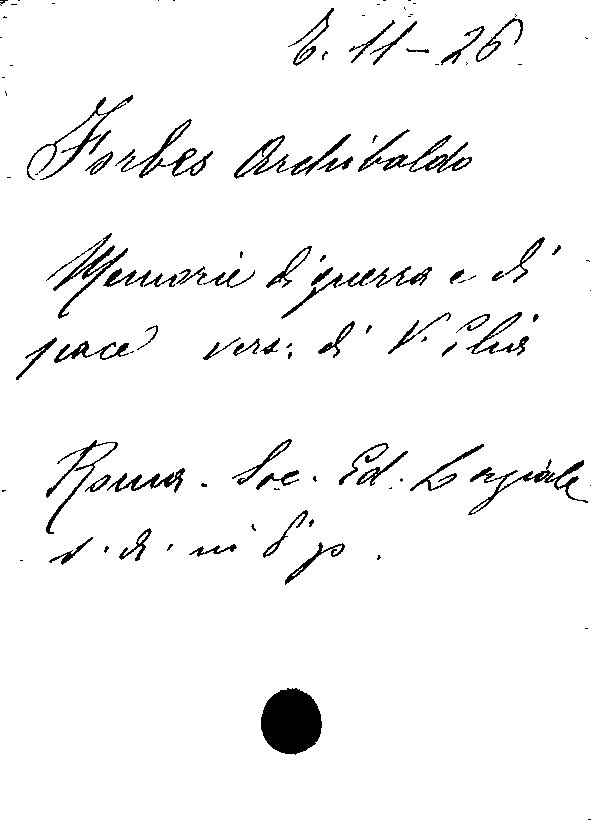 E. 11 - 26
Forbes Archibaldo
Memorie di guerra e di
pace vers. di V. Elia
Roma. Soc. Ed. Laziale
s. d. in 8° p.